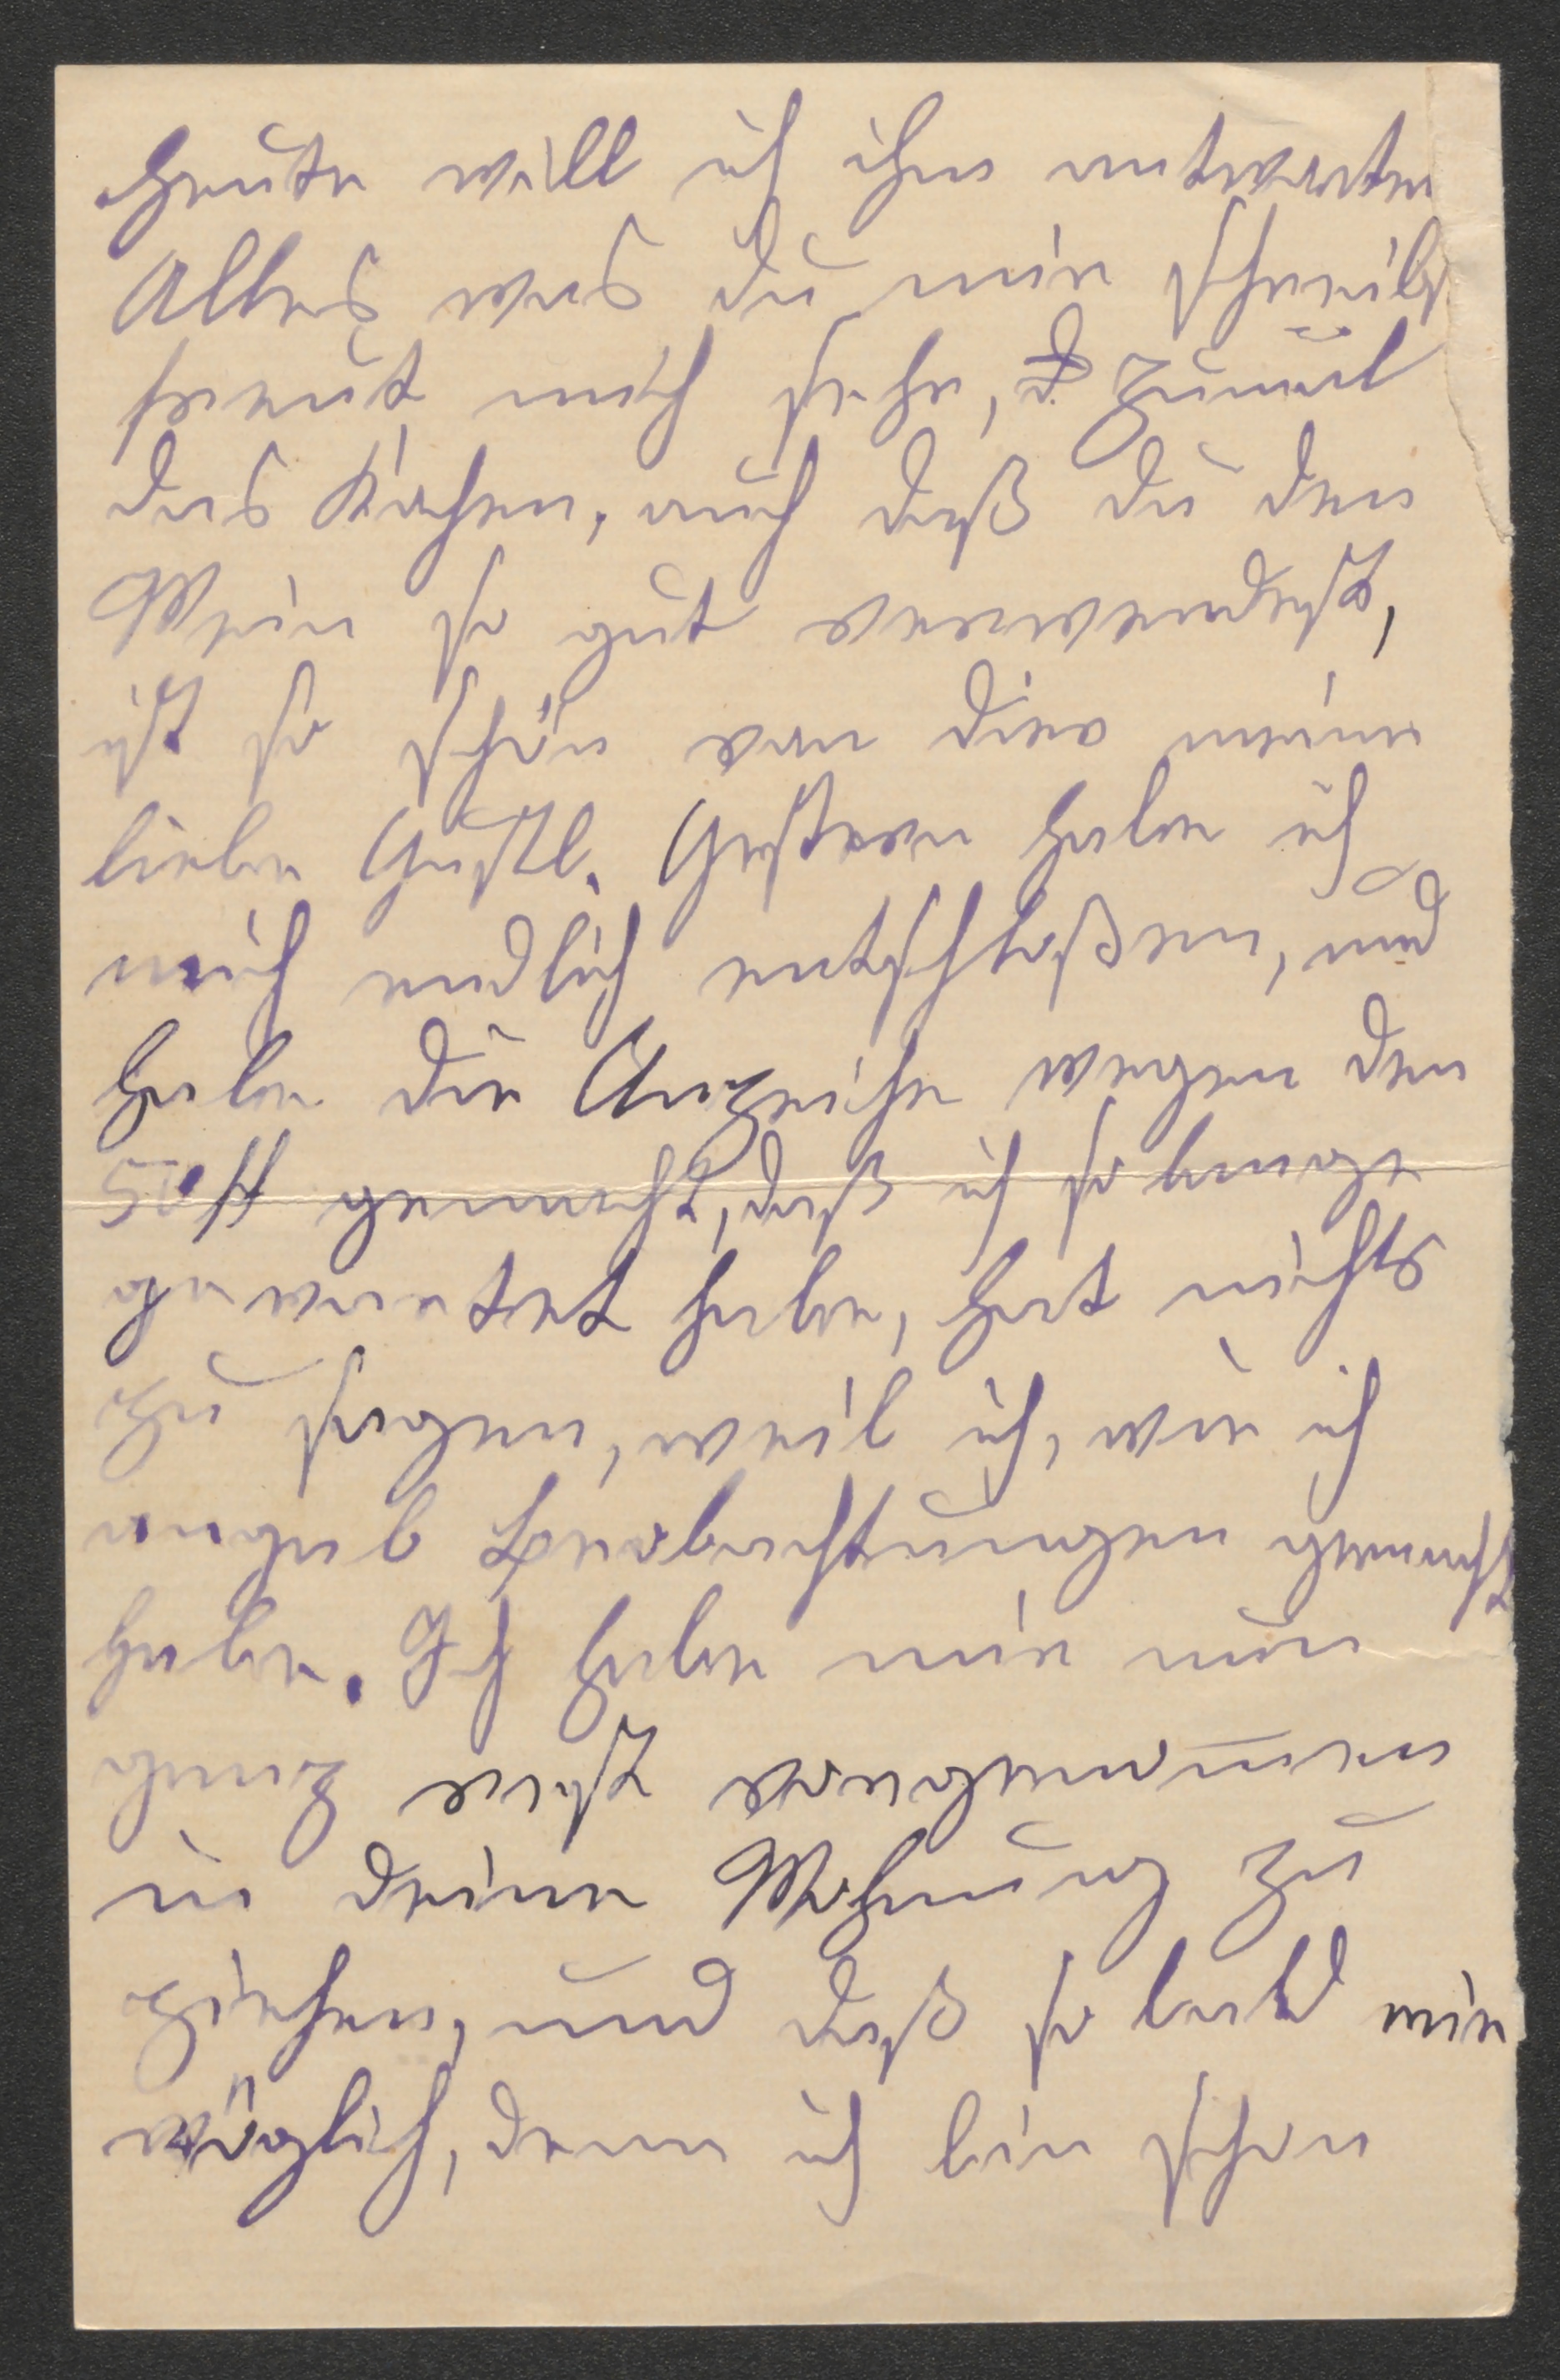 heute will ich ihm antworten
Alles was du mir schreibst
freut mich sehr, zumal
das Kochen, auch daß du den
Wein so gut verwendest,
ist so schön von dir meine
liebe Gustl. Gestern habe ich
mich endlich entschloßen, und
habe die Anzeige wegen den
50 H gemacht, daß ich so lange
gewartet habe, hat nichts
zu sagen, weil ich, wie ich
angab Beobachtungen gemacht
habe. Ich habe mir nun
fest vorgenommen ganz
in deine Wohnung zu
ziehen, und daß so bald wie
möglich, denn ich bin schon